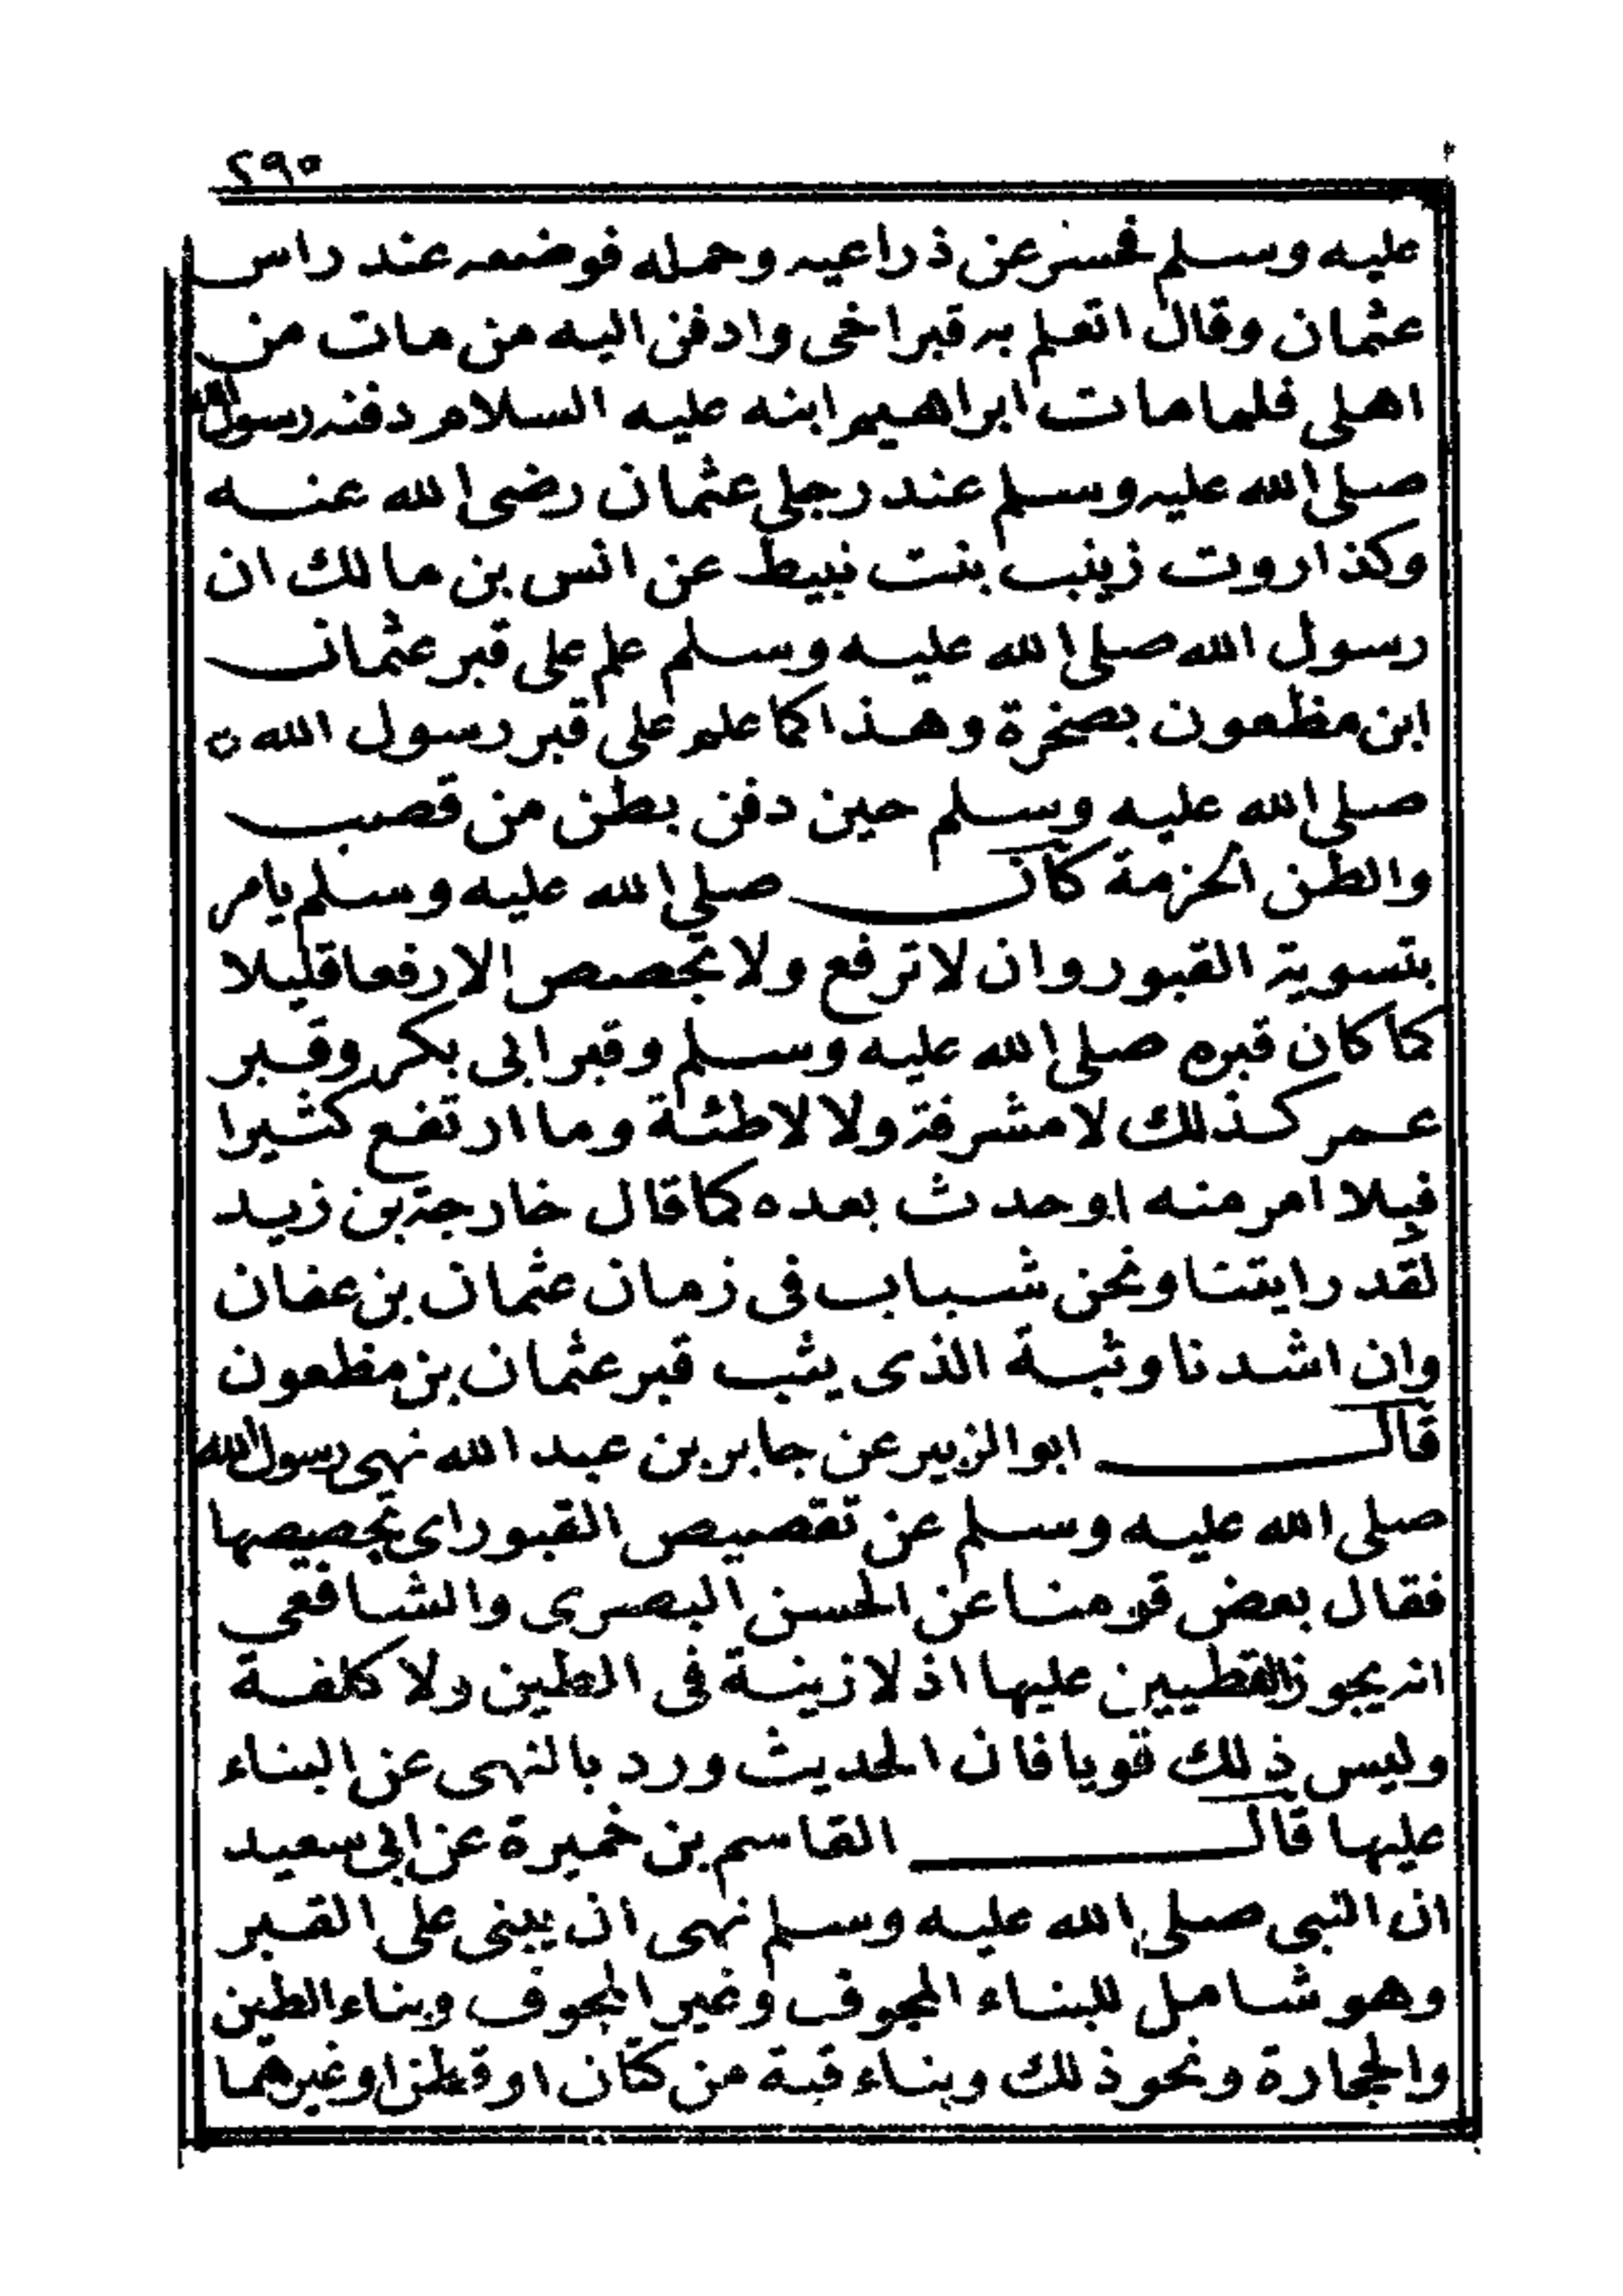 ٢٩٥
عليه وسلم فحسر عن ذراعيه وحمله فوضعه عند راس
عثمان وقال اتعلم به قبر اخى وادفن اليه من مات من
اهلى فلما مات ابراهيم ابنه عليه السلام دفنه رسول الله
صلى الله عليه وسلم عند رجلى عثمان رضى الله عنه
وكذا روت زينب بنت نبيط عن انس بن مالك ان
رسول الله صلى الله عليه وسلم علم على قبر عثمان
ابن مظعون بصخرة وهذا كما علم على قبر رسول الله
صلى الله عليه وسلم حين دفن بطن من قصب
والطن الحزمة كان صلى الله عليه وسلم يامر
بتسوية القبور وان لا ترفع ولا تجصص الا رفعا قليلا
كما كان قبره صلى الله عليه وسلم وقبر ابى بكر وقبر
عمر كذلك لا مشرفة ولا لاطئة وما ارتفع كثيرا
فبلا امر منه او حدث بعده كما قال خارجة بن زيد
لقد رايتنا ونحن شباب فى زمان عثمان بن عفان
وان اشدنا وثبة الذى يثب قبر عثمان بن مظعون
قال ابو الزبير عن جابر بن عبد الله نهى رسول الله
صلى الله عليه وسلم عن تقصيص القبور اى تجصيصها
فقال بعض قومنا عن الحسن البصرى والشافعى
انه يجوز التطيين عليها اذ لا زينة فى الطين ولا كلفة
وليس ذلك قويا فان الحديث ورد بالنهى عن البناء
عليها قال القاسم بن خميرة عن ابى سعيد
ان النبى صلى الله عليه وسلم نهى ان يبنى على القبر
وهو شامل للبناء المجوف وغير المجوف وبناء الطين
والحجارة ونحو ذلك وبناء قبة من كتان او قطن او غيرهما